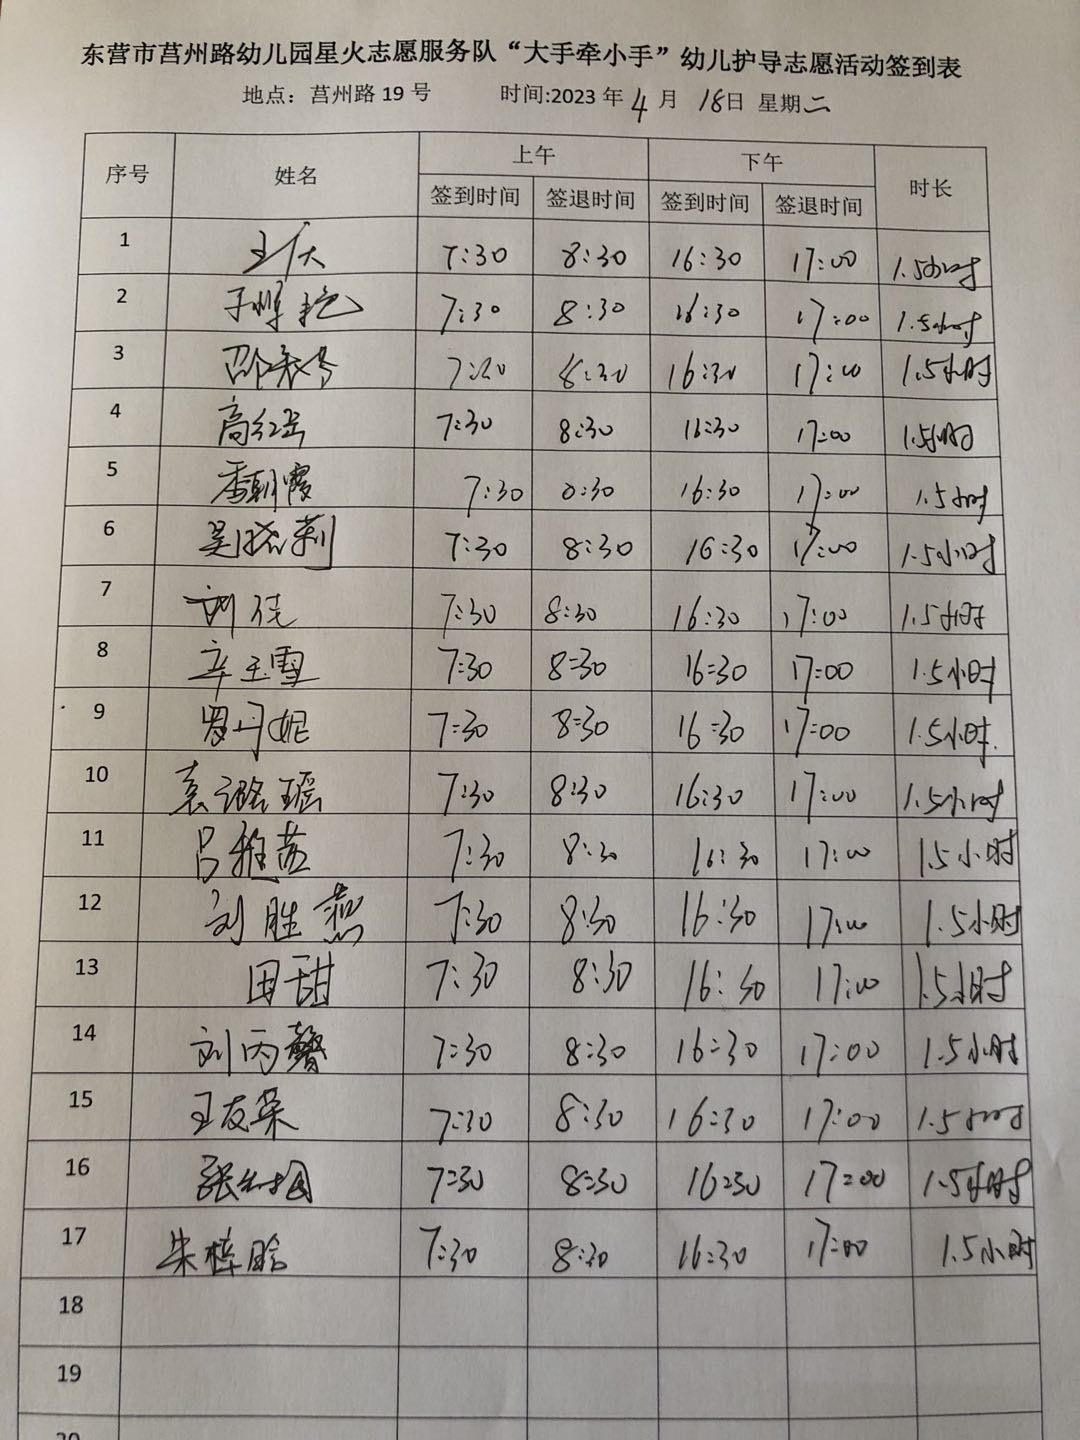 东营市莒州路幼儿园星火志愿服务队“大手牵小手”幼儿护导志愿活动签到表
地点：莒州路 19 号 时间:2023 年 4 月 18日 星期二
序号 姓名 上午 下午 时长
签到时间 签退时间 签到时间 签退时间
1 7:30 8:30 16:30 17:00 1.5小时
2 7:30 8:30 16:30 17:00 1.5小时
3 7:30 8:30 16:30 17:00 1.5小时
4 高红岳 7:30 8:30 16:30 17:00 1.5小时
5 季朝霞 7:30 8:30 16:30 17:00 1.5小时
6 吴晓莉 7:30 8:30 16:30 17:00 1.5小时
7 刘佳 7:30 8:30 16:30 17:00 1.5小时
8 辛玉雪 7:30 8:30 16:30 17:00 1.5小时
9 罗丹妮 7:30 8:30 16:30 17:00 1.5小时.
10 袁璐瑶 7:30 8:30 16:30 17:00 1.5小时
11 吕雅茹 7:30 8:30 16:30 17:00 1.5小时
12 刘胜燕 7:30 8:30 16:30 17:00 1.5小时
13 田甜 7:30 8:30 16:30 17:00 1.5小时
14 刘丙馨 7:30 8:30 16:30 17:00 1.5小时
15 王友荣 7:30 8:30 16:30 17:00 1.5小时
16 7:30 8:30 16:30 17:00 1.5小时
17 朱梓晗 7:30 8:30 16:30 17:00 1.5小时
18
19
20